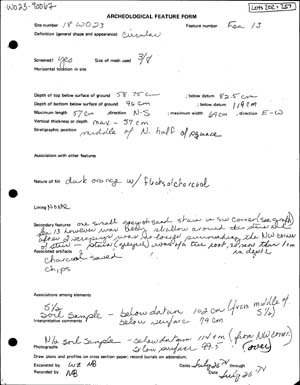 W023-90067
LOTS 202-207
ARCHEOLOGICAL FEATURE FORM
Site number 18 W023 Feature number Fea 13
Definition (general shape and appearance) circular
Screened? yes Size of mesh used 3/8
Horizontal location in site
Depth of top below surface of ground 58.75 cm ; below datum 82.5 cm
Depth of bottom below surface of ground 96 cm ; below datum 119 cm
Maximum length 57 cm ; direction N-S ; maximum width 69 cm ; direction E-W
Vertical thickness or depth max - 37 cm
Stratigraphic position middle of N. half of square
Association with other features
Nature of fill dark orange w/ flecks of charcoal
Lining NONE
Secondary features one small greyish sand stain in SW corner (see graph)
was no longer surrounding the NW corner
was a tree root, no more than 1 cm
in depth
Associated artifacts charcoal saved
chips
Associations among elements
S 1/2
Soil Sample - below datum 102 cm (from middle of
Interpretative comments below surface 79 cm S 1/2)
N 1/2 Soil Sample - below datum 114 cm (from NW corner)
below surface 99.5 (over)
Draw plans and profiles on cross section paper; record numbers on back.
Excavated by WZ AB Dates July 26
Recorded by AB Date July 26